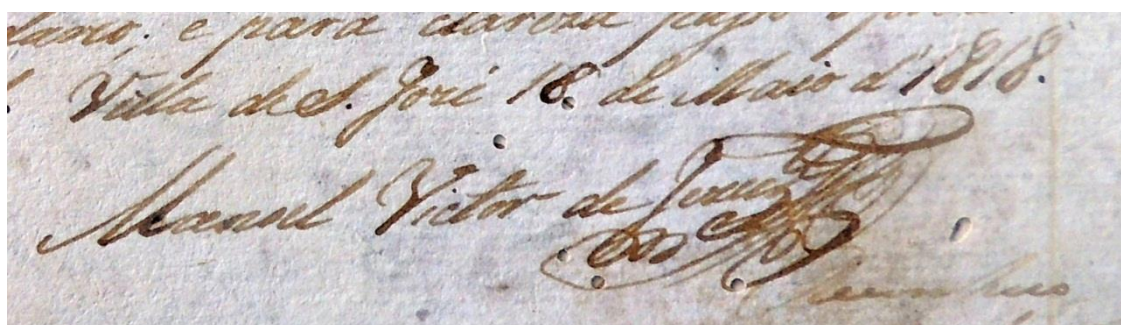 e para clareza
Villa de S. Jozé 18 de Maio d'1818.
Manoel Victor de Jesus